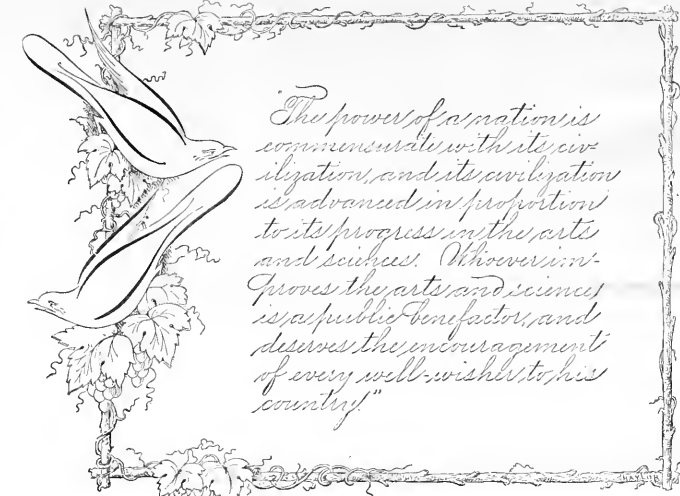 "The power of a nation is
commensurate with its civ-
ilization, and its civilization
is advanced in proportion
to its progress in the arts
and sciences. Whoever im-
proves the arts and sciences
is a public benefactor, and
deserves the encouragement
of every well-wisher to his
country."